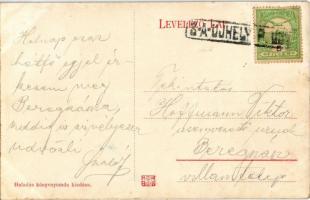 LEVELEZŐ-LAP
S-A-UJHELY
Holnap
hétfő éjjel ér-
kezem meg
Beregszászba
addig is szívélyesen
üdvözli
Tekintetes
Hoffmann Viktor
úrnak
Beregszász
villanytelep
Haladás könyvnyomda kiadása.